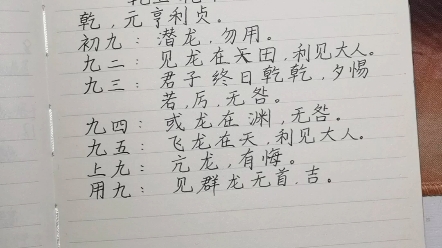 乾，元亨利贞。
初九：潜龙，勿用。
九二：见龙在田，利见大人。
九三：君子终日乾乾，夕惕
若，厉，无咎。
九四：或龙在渊，无咎。
九五：飞龙在天，利见大人。
上九：亢龙，有悔。
用九：见群龙无首，吉。